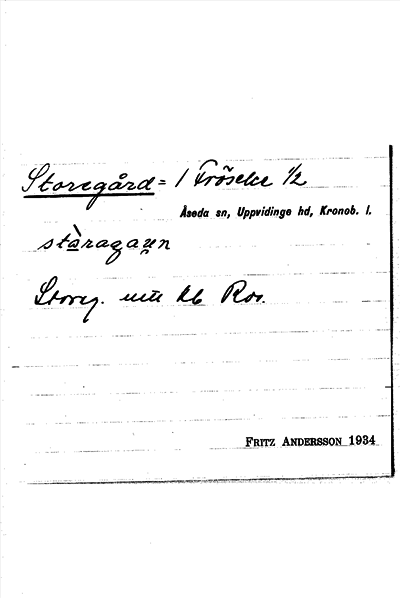 Storegård = 1 Fröseke 1/2
Åseda sn, Uppvidinge hd, Kronob. l.
Storeg. nu kb Ros.
FRITZ ANDERSSON 1934